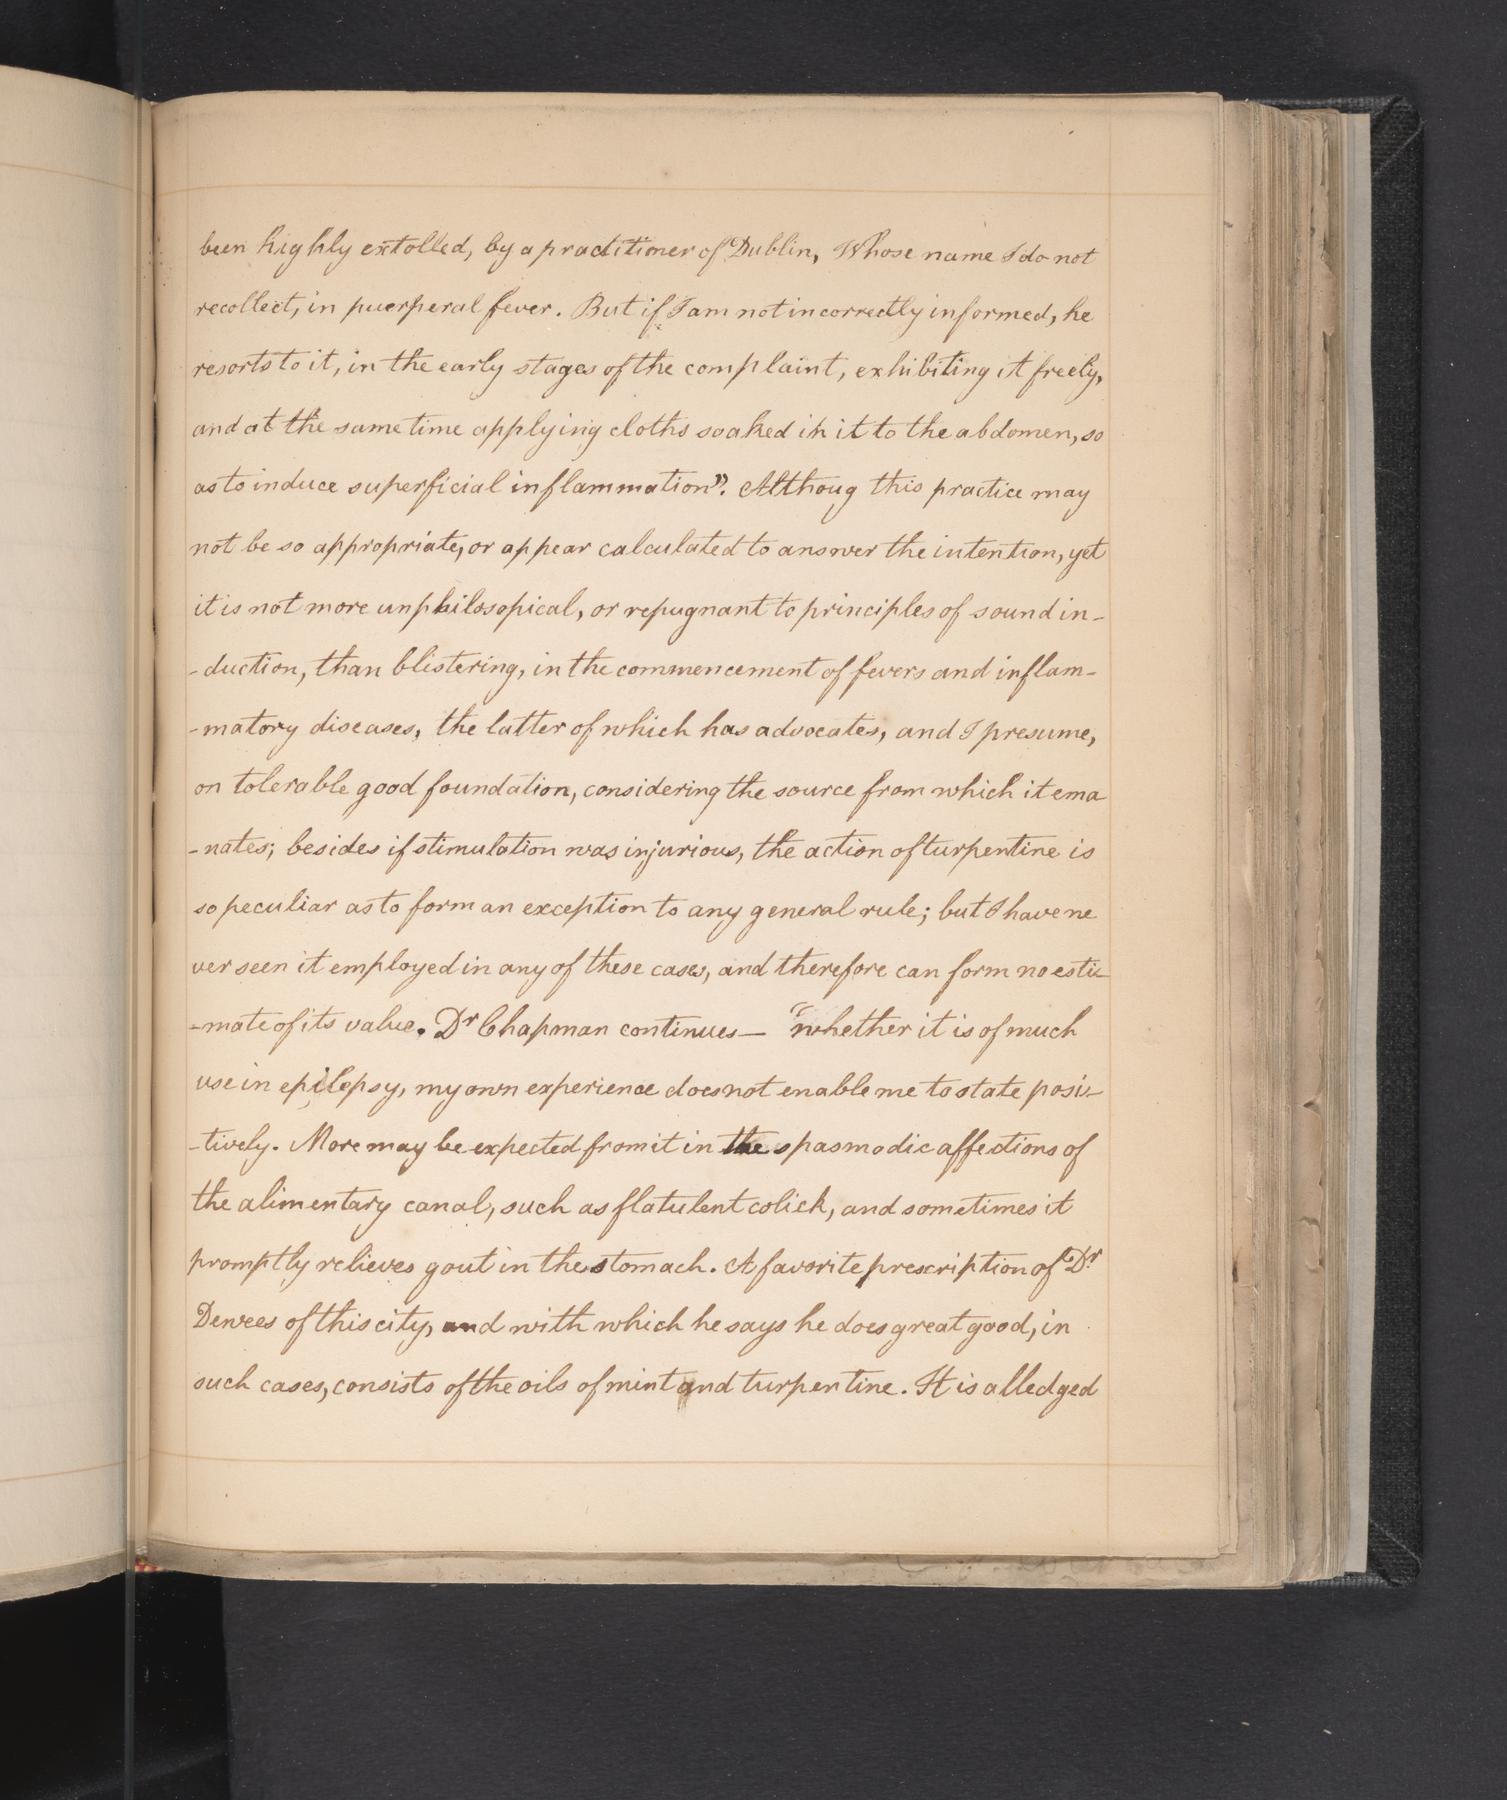 been highly extolled, by a practitioner of Dublin, Whose name I do not
recollect, in puerperal fever. But if I am not incorrectly informed, he
resorts to it, in the early stages of the complaint, exhibiting it freely,
and at the same time applying cloths soaked in it to the abdomen, so
as to induce superficial inflammation". Althoug this practice may
not be so appropriate, or appear calculated to answer the intention, yet
it is not more unphilosopical, or repugnant to principles of sound in-
-duction, than blistering, in the commencement of fevers and inflam-
-matory diseases, the latter of which has advocates, and I presume,
on tolerable good foundation, considering the source from which it ema
-nates; besides if stimulation was injurious, the action of turpentine is
so peculiar as to form an exception to any general rule; but I have ne
ver seen it employed in any of these cases, and therefore can form no esti-
-mate of its value. Dr Chapman continues— "whether it is of much
use in epilepsy, my own experience does not enable me to state posi-
-tively. More may be expected from it in the spasmodic affections of
the alimentary canal, such as flatulent colick, and sometimes it
promptly relieves gout in the stomach. A favorite prescription of Dr
Dewees of this city, and with which he says he does great good, in
such cases, consists of the oils of mint and turpentine. It is alledged